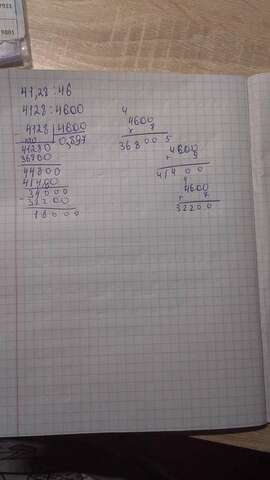 41,28 : 46
4128 : 4600
4128 | 4600
0,897
41280
36800
44800
41400
34000
- 32200
18000
4
4600
× 8
36800
5
4600
× 9
41400
4
4600
× 7
32200